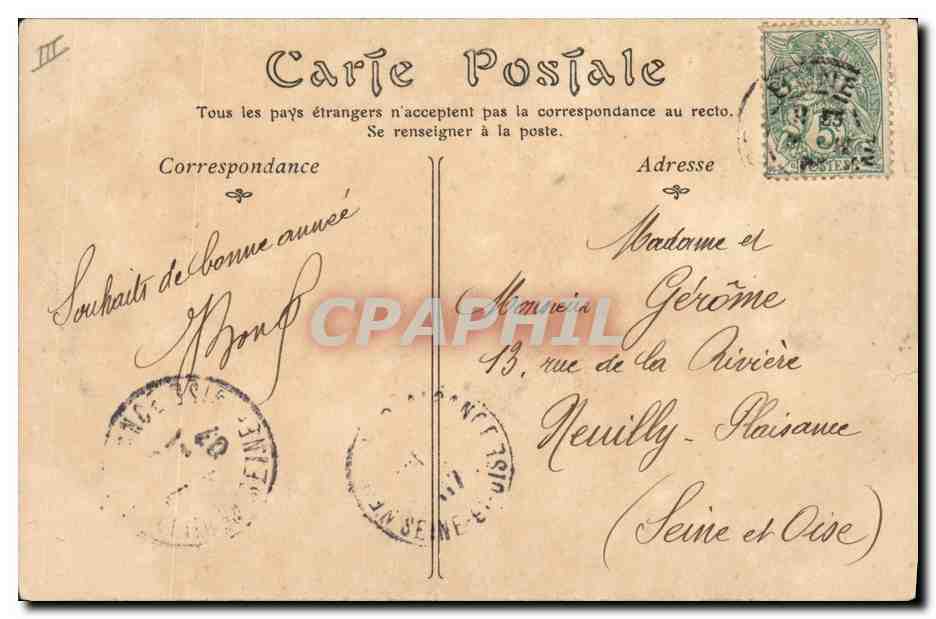 III
Carte Postale
Tous les pays étrangers n'acceptent pas la correspondance au recto.
Se renseigner à la poste.
Correspondance
Adresse
Souhaits de bonne année
Madame et
Monsieur Gérôme
13, rue de la Rivière
Neuilly-Plaisance
(Seine et Oise)
5
POSTES
SEINE-ET-OISE
CPAPHIL